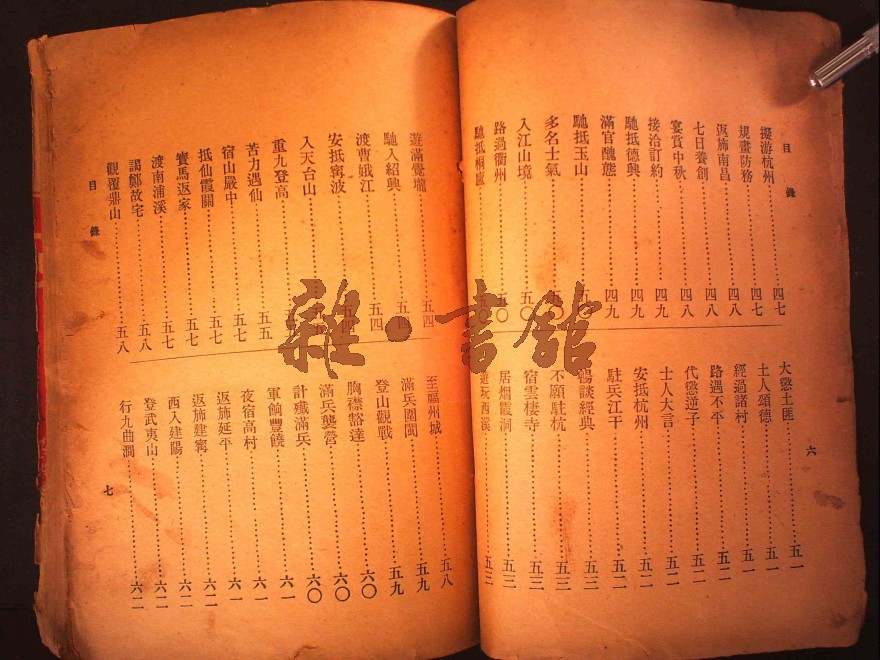 目錄
擬游杭州……四七
規畫防務……四七
返旆南昌……四八
七日養創……四八
宴賞中秋……四八
接洽訂約……四九
馳抵德興……四九
滿官醜態……四九
馳抵玉山……
多名士氣……
入江山境……五〇
路過衢州……五〇
馳抵桐廬……五〇
大懲土匪……五一
土人頌德……五一
經過諸村……五一
路遇不平……五一
代懲逆子……五二
士人大言……五二
安抵杭州……五二
駐兵江干……五二
暢談經典……五三
不願駐杭……五三
宿雲棲寺……五三
居烟霞洞……五三
遊玩西溪……五三
六
遊滿覺壠……五四
馳入紹興……五四
渡曹娥江……五四
安抵寧波……
入天台山……
重九登高……
苦力遇仙……五五
宿山嚴中……五七
抵仙霞關……五七
賣馬返家……五七
渡南浦溪……五七
謁鄭故宅……五八
觀覆鼎山……五八
至福州城……五八
滿兵圍閩……五九
登山觀戰……五九
胸襟豁達……六〇
滿兵襲營……六〇
計殲滿兵……六〇
軍餉豐饒……六一
夜宿高村……六一
返旆延平……六一
返旆建寧……六二
西入建陽……六二
登武夷山……六二
行九曲澗……六二
目錄
七
雜·書館